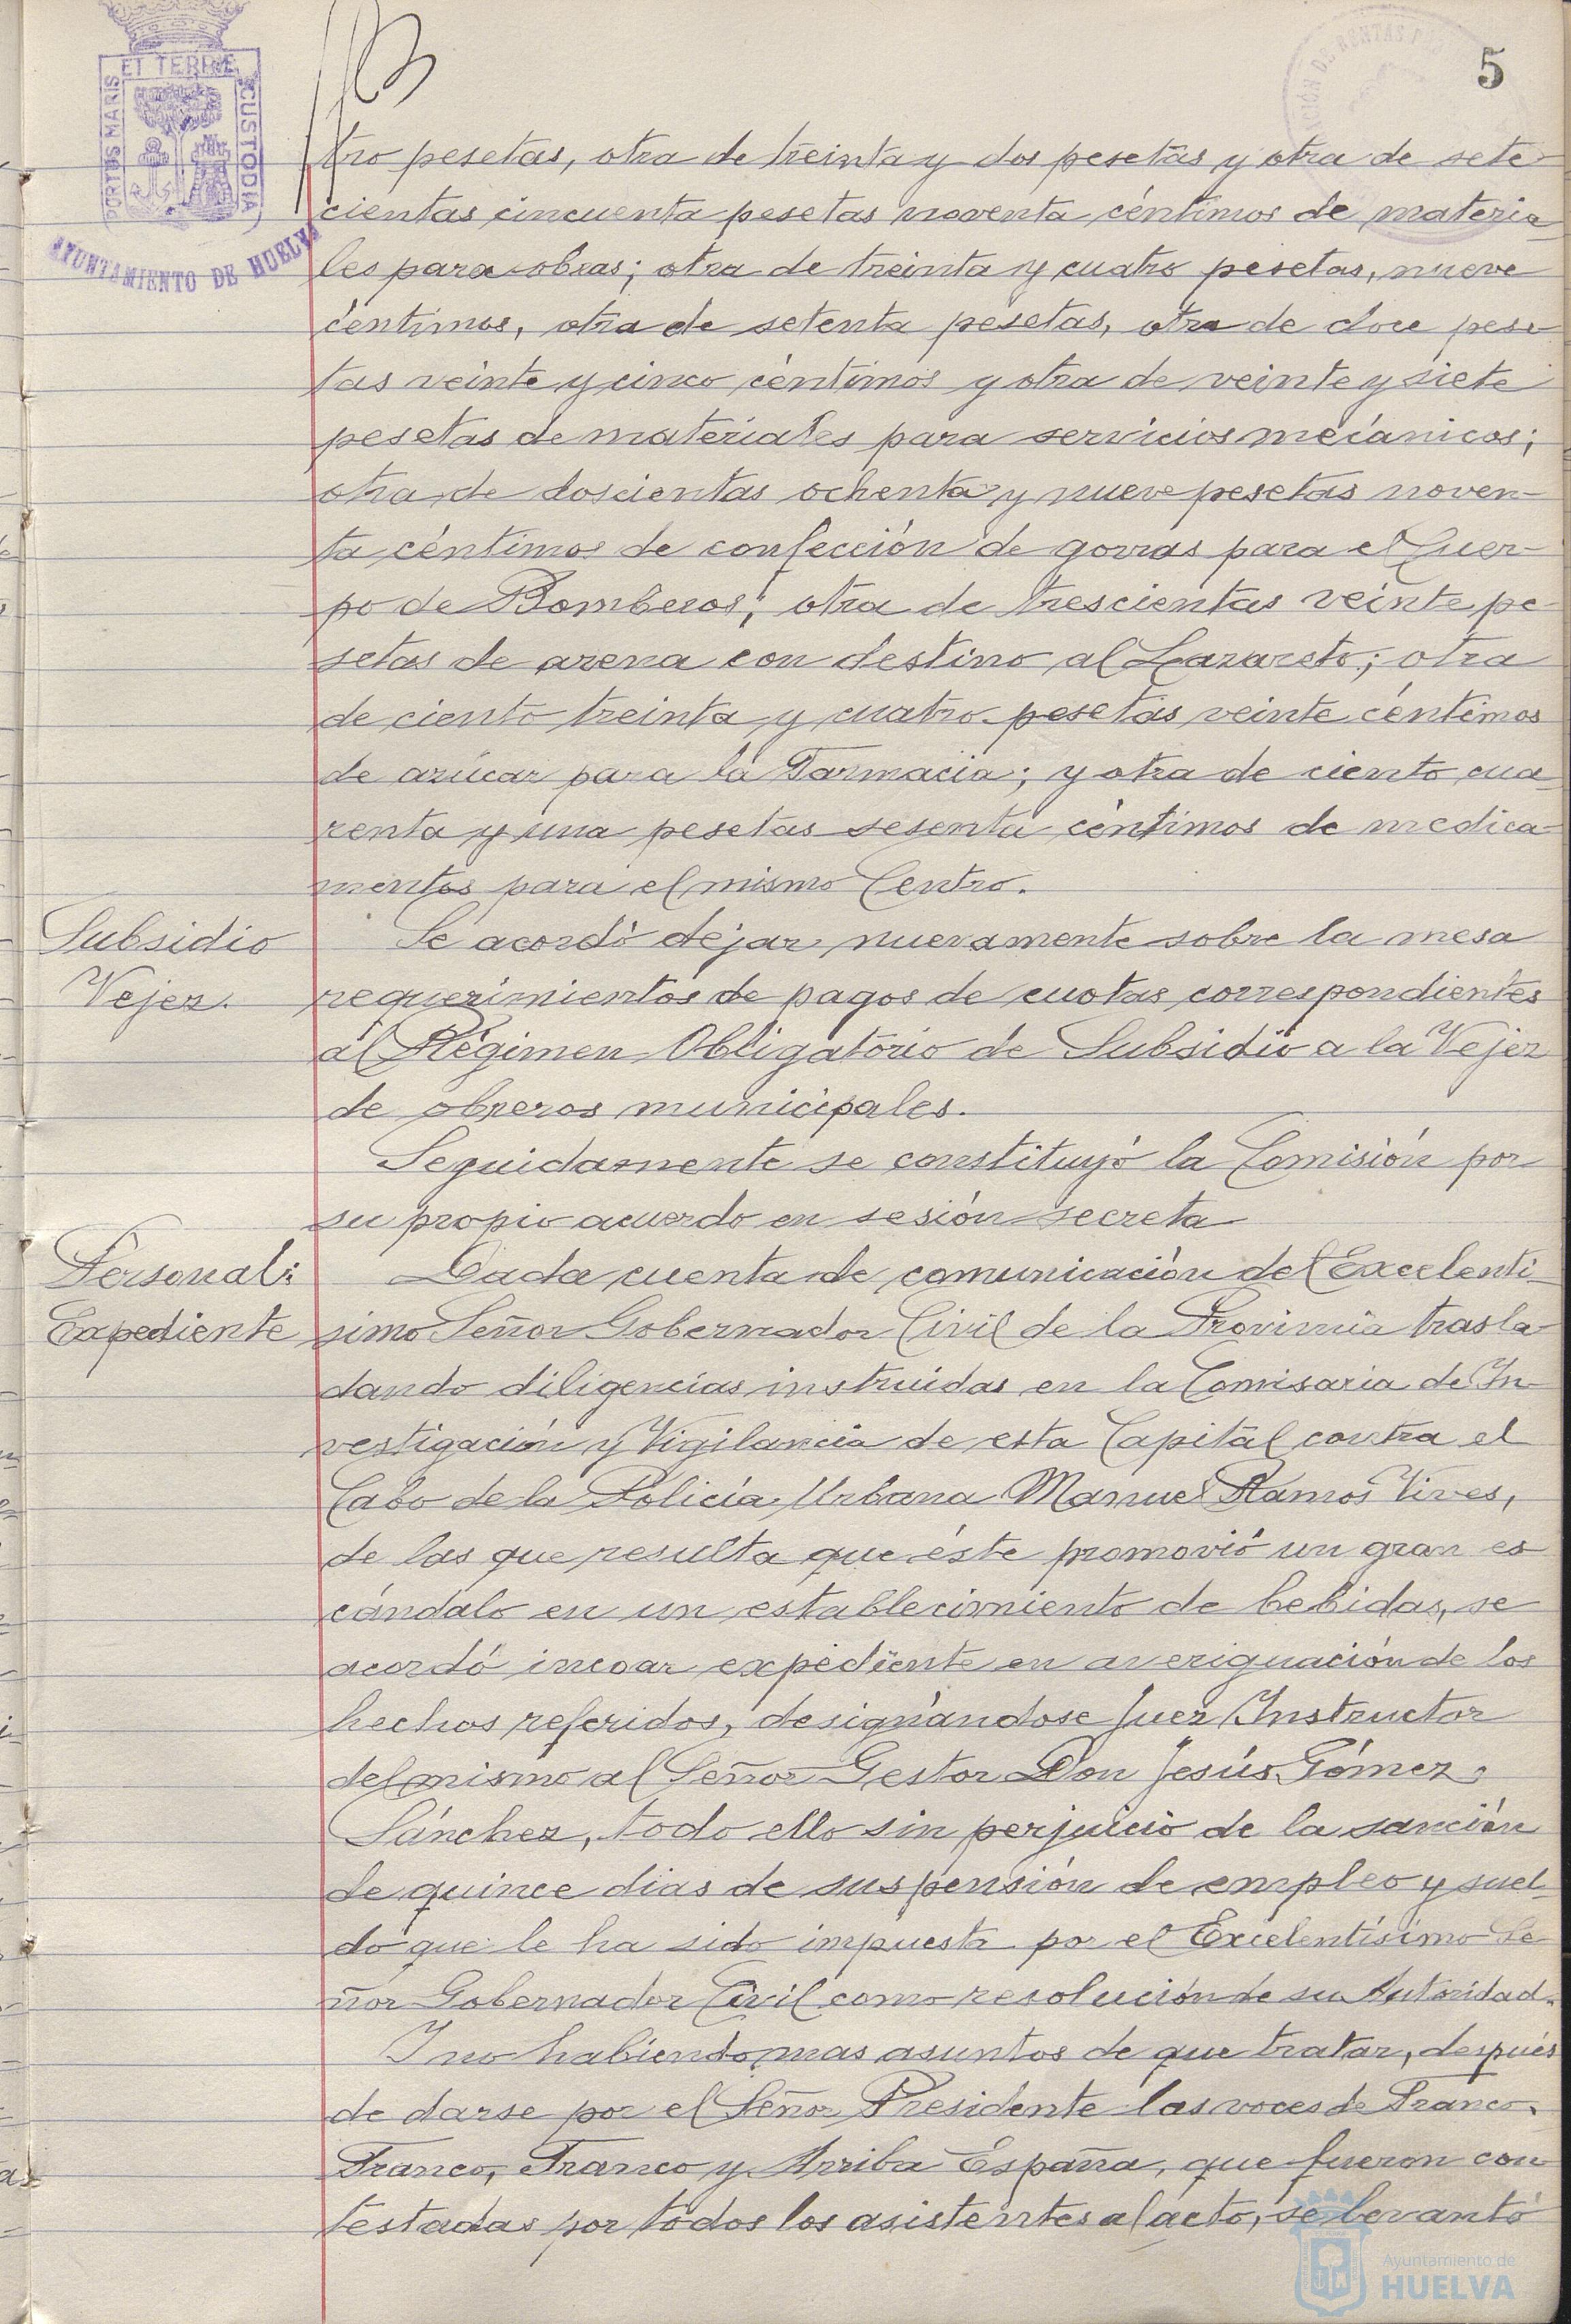 5
PORTUS MARIS ET TERRE CUSTODIA
AYUNTAMIENTO DE HUELVA
tro pesetas, otra de treinta y dos pesetas y otra de sete-
cientas cincuenta pesetas noventa céntimos de materia-
les para obras; otra de treinta y cuatro pesetas, nueve
céntimos, otra de setenta pesetas, otra de doce pese-
tas veinte y cinco céntimos y otra de veinte y siete
pesetas de materiales para servicios mecánicos;
otra de doscientas ochenta y nueve pesetas noven-
ta céntimos de confección de gorras para el Cuer-
po de Bomberos; otra de trescientas veinte pe-
setas de arena con destino al Lazareto; otra
de ciento treinta y cuatro pesetas veinte céntimos
de azúcar para la Farmacia; y otra de ciento cua-
renta y una pesetas sesenta céntimos de medica-
mentos para el mismo Centro.
Subsidio
Vejez.
Se acordó dejar nuevamente sobre la mesa
requerimientos de pagos de cuotas correspondientes
al Régimen Obligatorio de Subsidio a la Vejez
de obreros municipales.
Seguidamente se constituyó la Comisión por
su propio acuerdo en sesión secreta
Personal:
Expediente
Dada cuenta de comunicación del Excelentí-
simo Señor Gobernador Civil de la Provincia trasla-
dando diligencias instruidas en la Comisaria de In-
vestigación y Vigilancia de esta Capital contra el
Cabo de la Policía Urbana Manuel Ramos Vives,
de las que resulta que éste promovió un gran es
cándalo en un establecimiento de bebidas, se
acordó incoar expediente en averiguación de los
hechos referidos, designándose Juez Instructor
del mismo al Señor Gestor Don Jesús Gómez
Sánchez, todo ello sin perjuicio de la sanción
de quince dias de suspensión de empleo y suel-
do que le ha sido impuesta por el Excelentísimo Se
ñor Gobernador Civil como resolución de su Autoridad.
Y no habiendo mas asuntos de que tratar, después
de darse por el Señor Presidente las voces de Franco,
Franco, Franco y Arriba España, que fueron con
testadas por todos los asistentes al acto, se levantó
Ayuntamiento de
HUELVA